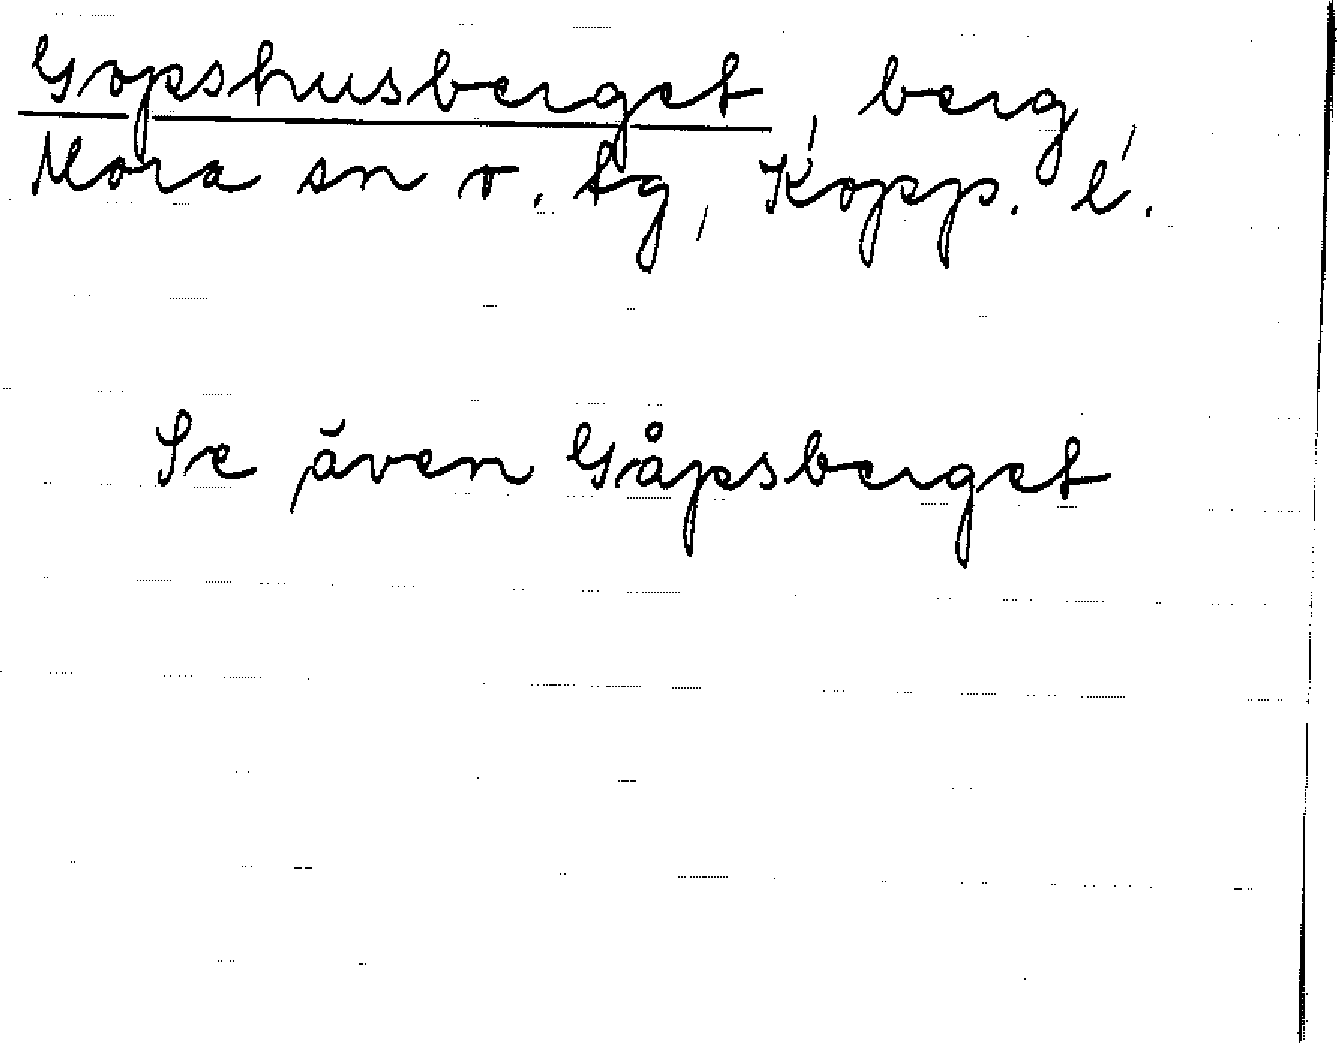 Gopshusberget, berg,
Mora sn o. tg, Kopp. l.
Se även Gåpsberget